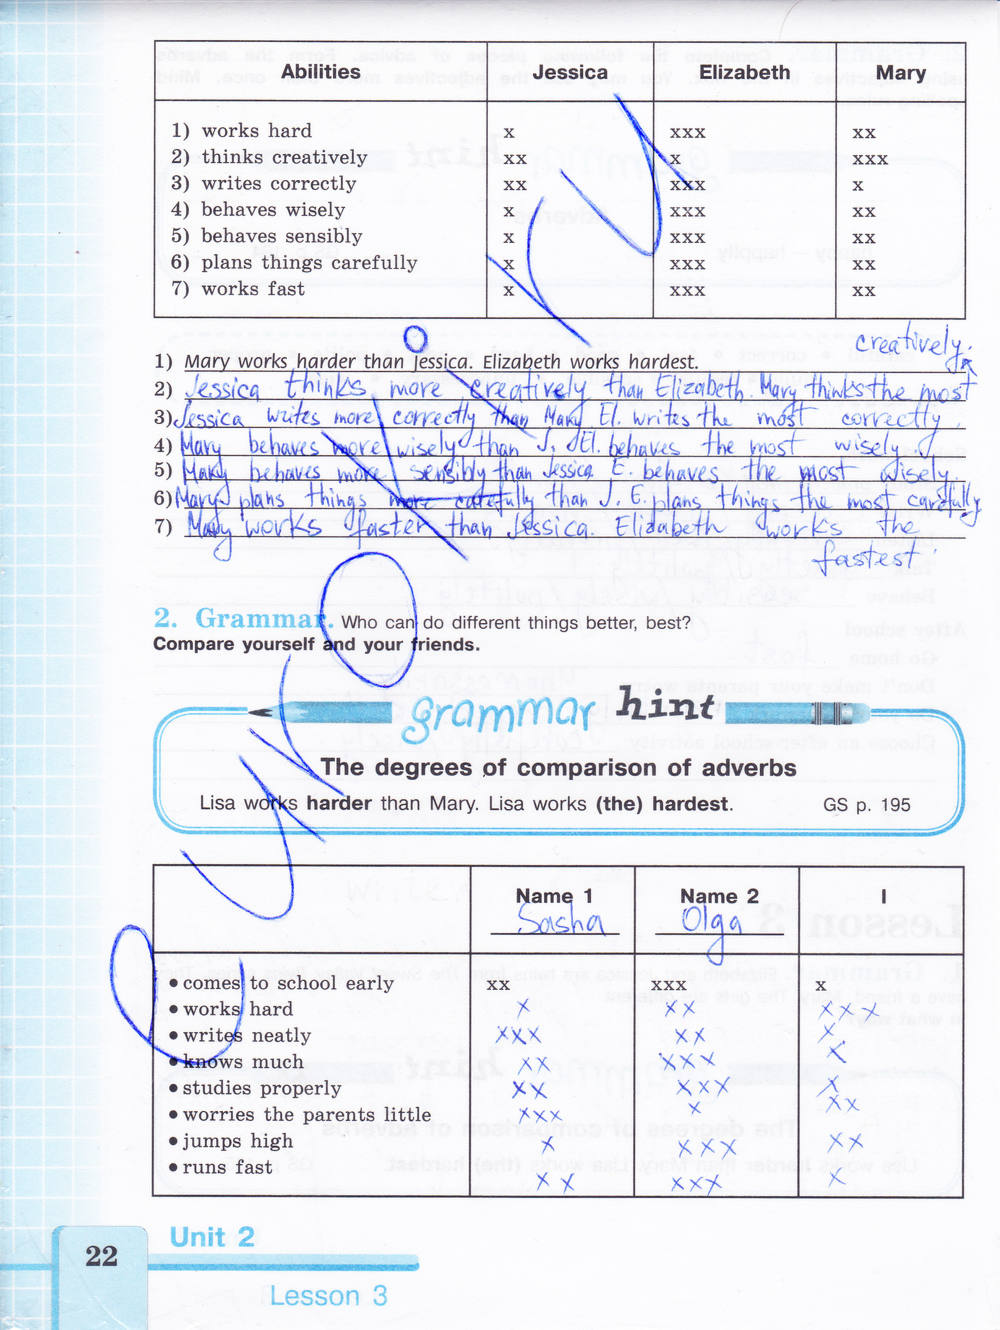 Abilities Jessica Elizabeth Mary
1) works hard x xxx xx
2) thinks creatively xx x xxx
3) writes correctly xx xxx x
4) behaves wisely x xxx xx
5) behaves sensibly x xxx xx
6) plans things carefully x xxx xx
7) works fast x xxx xx
creatively.
1) Mary works harder than Jessica. Elizabeth works hardest.
2) Jessica thinks more creatively than Elizabeth. Mary thinks the most
3) Jessica writes more correctly than Mary. El. writes the most correctly.
4) Mary behaves more wisely than J. El. behaves the most wisely.
5) Mary behaves more sensibly than Jessica. E. behaves the most wisely.
6) Mary plans things more carefully than J. E. plans things the most carefully
7) Mary works faster than Jessica. Elizabeth works the
fastest.
2. Grammar. Who can do different things better, best?
Compare yourself and your friends.
grammar hint
The degrees of comparison of adverbs
Lisa works harder than Mary. Lisa works (the) hardest. GS p. 195
Name 1 Name 2 I
Sasha Olga
• comes to school early xx xxx x
• works hard x xx xxx
• writes neatly xxx xx x
• knows much xx xxx x
• studies properly xx xxx x
• worries the parents little xxx x xx
• jumps high x xxx xx
• runs fast xx xxx x
22
Unit 2
Lesson 3